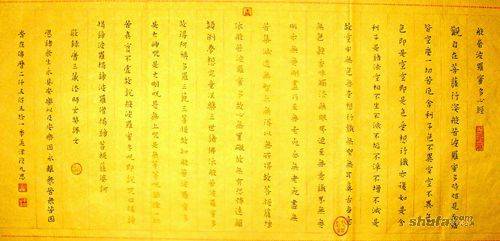 般若波羅蜜多心經
觀自在菩薩行深般若波羅蜜多時照見五蘊
皆空度一切苦厄舍利子色不異空空不異色
色即是空空即是色受想行識亦復如是舍
利子是諸法空相不生不滅不垢不淨不增不減是
故空中無色無受想行識無眼耳鼻舌身意
無色聲香味觸法無眼界乃至無意識界無無
明亦無無明盡乃至無老死亦無老死盡無
苦集滅道無智亦無得以無所得故菩提薩埵
依般若波羅蜜多故心無罣礙無罣礙故無有恐怖遠離
顛倒夢想究竟涅槃三世諸佛依般若波羅蜜多
故得阿耨多羅三藐三菩提故知般若波羅蜜多是
大神咒是大明咒是無上咒是無等等咒能除一切
苦真實不虛故說般若波羅蜜多咒即說咒曰揭諦
揭諦波羅揭諦波羅僧揭諦菩提薩婆訶
敬錄唐三藏法師玄奘譯文
愿諸眾生永具安樂以及安樂因永離眾苦
佛曆二千五百五拾一季